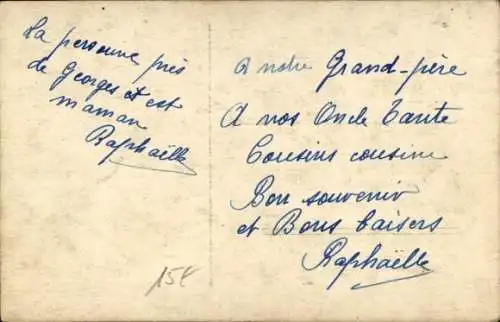 La personne près
de Georges et est
maman
Raphaëlle
A notre Grand-père
A nos Oncle Tante
Cousins cousine
Bon souvenir
et Bons baisers
Raphaëlle
15€